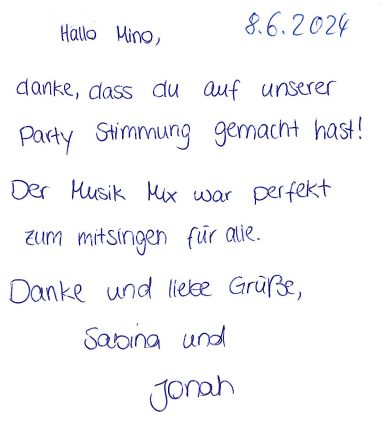 8.6.2024
Hallo Mino,
danke, dass du auf unserer
Party Stimmung gemacht hast!
Der Musik Mix war perfekt
zum mitsingen für alle.
Danke und liebe Grüße,
Sabina und
Jonah